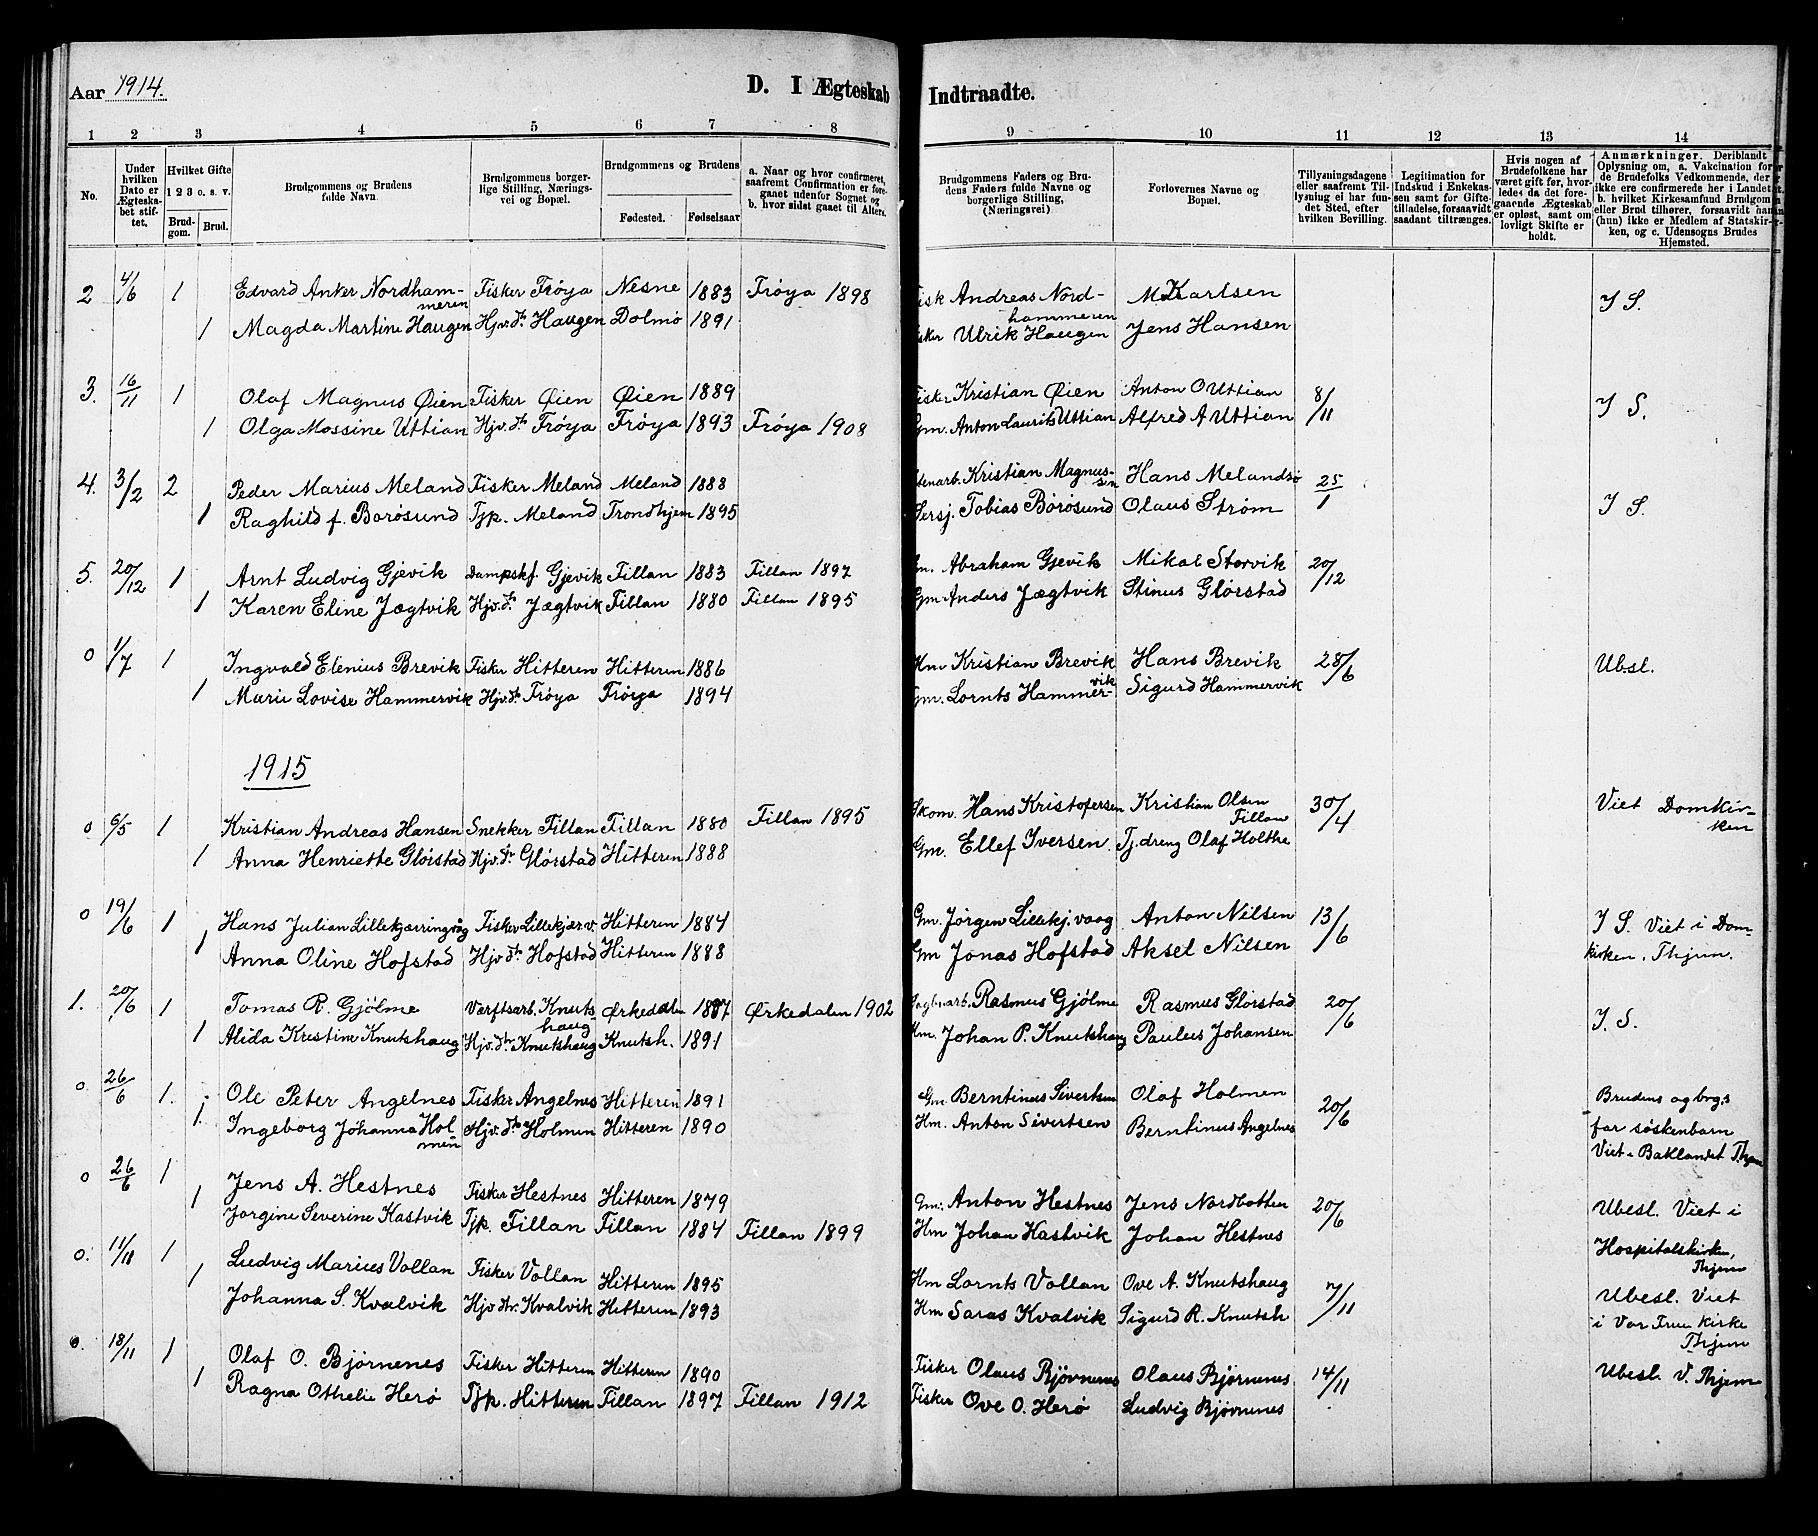 Aar 1914.
D. I Ægteskab Indtraadte.
1 2 3 4 5 6 7 8 9 10 11 12 13 14
No.
Under hvilken Dato er Ægteskabet stiftet.
Hvilket Gifte 1 2 3 o. s. v.
Brudgom. Brud.
Brudgommens og Brudens fulde Navn.
Brudgommens borgerlige Stilling, Næringsvei og Bopæl.
Brudgommens og Brudens
Fødested. Fødselsaar
a. Naar og hvor confirmeret, saafremt Confirmation er foregaaet udenfor Sognet og b. hvor sidst gaaet til Alters.
Brudgommens Faders og Brudens Faders fulde Navne og borgerlige Stilling, (Næringsvei)
Forlovernes Navne og Bopæl.
Tillysningsdagene eller saafremt Tillysning ei har fundet Sted, efter hvilken Bevilling.
Legitimation for Indskud i Enkekassen samt for Giftetilladelse, forsaavidt saadant tiltrænges.
Hvis nogen af Brudefolkene har været gift før, hvorledes da det foregaaende Ægteskab er opløst, samt om lovligt Skifte er holdt.
Anmærkninger. Deriblandt Oplysning om, a. Vakcination for de Brudefolks Vedkommende, der ikke ere confirmerede her i Landet. b. hvilket Kirkesamfund Brudgom eller Brud tilhører, forsaavidt han (hun) ikke er Medlem af Statskirken, og c. Udensogns Brudes Hjemsted.
2 4/6 1 Edvard Anker Nordhammeren Fisker Frøya Nesne 1883 Frøya 1898 Fisk Andreas Nordhammeren M. Karlsen I S.
1 Magda Martine Haugen Hjv. dtr Haugen Dolmø 1891 Fisker Ulrik Haugen Jens Hansen
3. 16/11 1 Olaf Magnus Øien Fisker Øien Øien 1889 Fisker Kristian Øien Anton O Uttian 8/11 I S.
1 Olga Mossine Uttian Hjv. dtr Frøya Frøya 1893 Frøya 1908 Gm. Anton Laurits Uttian Alfred A Uttian
4. 3/2 2 Peder Marius Meland Fisker Meland Meland 1888 Stenarb. Kristian Magnussen Hans Melandsø 25/1
1 Raghild f. Borøsund Tjp. Meland Trondhjem 1895 Sersj. Tobias Børøsund Olaus Strøm I S.
5. 20/12 1 Arnt Ludvig Gjevik Dampskf. Gjevik Fillan 1883 Fillan 1897 Gm. Abraham Gjevik Mikal Storvik 20/12
1 Karen Eline Jægtvik Hjv. dtr Jægtvik Fillan 1880 Fillan 1895 Gm. Anders Jægtvik Stinus Glørstad
0 1/7 1 Ingvald Elenius Brevik Fisker Hitteren Hitteren 1886 Hm Kristian Brevik Hans Brevik 28/6 Ubsl.
1 Marie Lovise Hammervik Hjv. dtr Frøya Frøya 1894 Gm. Lornts Hammervik Sigurd Hammervik
1915
0 6/5 1 Kristian Andreas Hansen Snekker Fillan Fillan 1880 Fillan 1895 Skom. Hans Kristofersen Kristian Olsen Fillan 30/4 Viet Domkirken
1 Anna Henriette Glørstad Hjv. dtr Glørstad Hitteren 1888 Gm. Ellef Iversen. Tj.dreng Olaf Holthe
0 19/6 1 Hans Julian Lillekjærringvåg Fisker Lillekjær.v. Hitteren 1884 Gm. Jørgen Lillekj.vaag Anton Nilsen 13/6 I S. Viet i Domkirken, Thjem.
1 Anna Oline Hofstad Hjv dtr Hofstad Hitteren 1888 Gm Jonas Hofstad Aksel Nilsen
1. 20/6 1 Tomas R. Gjølme Værftsarb. Knutshaug Ørkedalen 1887 Ørkedalen 1902 Sagbrarb. Rasmus Gjølme Rasmus Glørstad 20/6 I. S.
1 Alida Kristine Knutshaug Hjv. dtr Knutshaug Knutsh. 1891 Hm. Johan P. Knutshaug Paulus Johansen
0. 26/6 1. Ole Peter Angelnes Fisker Angelnes Hitteren 1891 Gm Berntinus Sivertsen Olaf Holmen 20/6 Brudens og brg.s far søskenbarn Viet Baklandet Thjem
1. Ingeborg Johanna Holmen Hjv. dtr Holmen Hitteren 1890 Hm. Anton Sivertsen Berntinus Angelnes
0 26/6 1 Jens A. Hestnes Fisker Hestnes Hitteren 1879 Gm. Anton Hestnes Jens Nordbotten 20/6 Ubesl. Viet i Hospitalskirken, Thjem
1 Jorgine Severine Kastvik Tjp. Fillan Fillan 1884 Fillan 1899 Hm Johan Kastvik Johan Hestnes
0. 11/11 1 Ludvig Marius Vollan Fisker Vollan Hitteren 1895 Hm Lornts Vollan Ove A. Knutshaug 7/11 Ubesl. Viet i Vor Frue Kirke Thjem
1 Johanna S. Kvalvik Hjv dtr. Kvalvik Hitteren 1893 Hm Saras Kvalvik Sigurd R. Knutsh
0. 18/11 1 Olaf O. Bjørnenes Fisker Hitteren Hitteren 1890 Fisker Olaus Bjørnenes Olaus Bjørnenes 14/11 Ubesl. V. Thjem
1 Ragna Othelie Herø Tjp. Hitteren Fillan 1897 Fillan 1912 Fisker Ove O. Herø Ludvig Bjørnenes